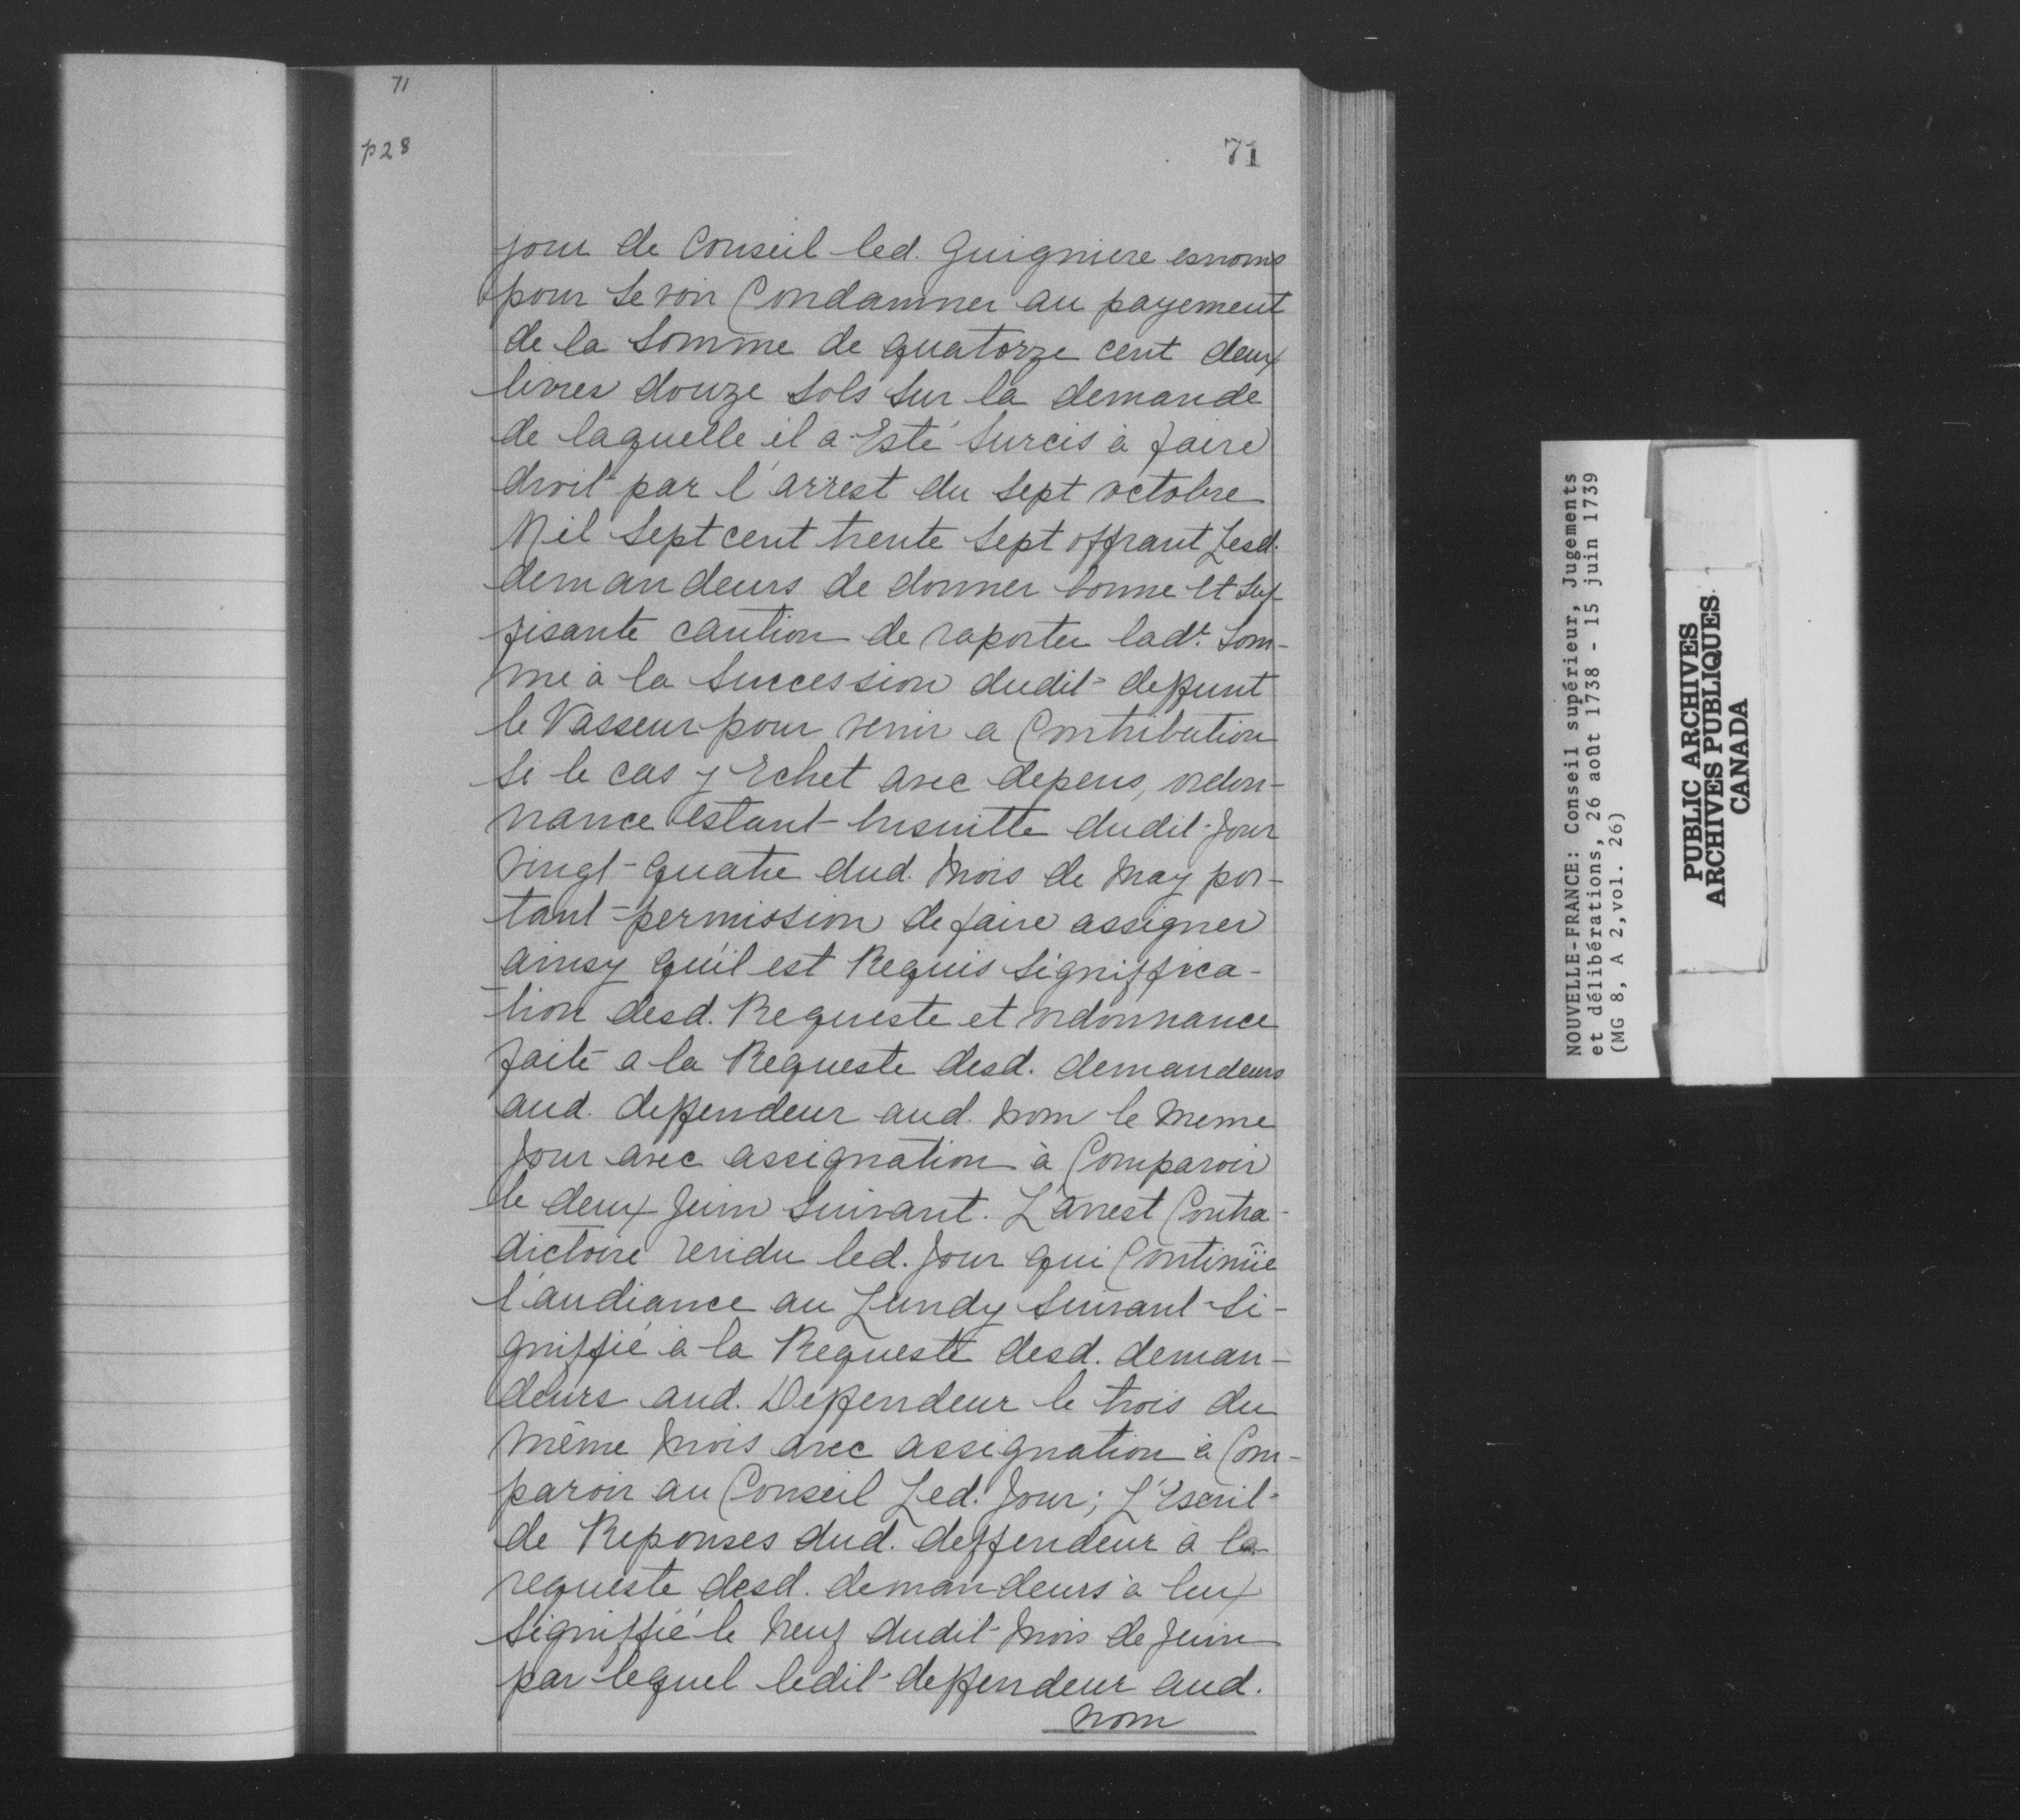 71
p28
71
jour de Conseil led. Guigniere esnoms
pour se voir Condamner au payement
de la Somme de quatorze cent deux
livres douze Sols Sur la demande
de laquelle il a Esté Surcis à faire
droit par l'arrest du Sept octobre
Mil Sept cent trente Sept offrant Lesd.
demandeurs de donner bonne et Suf-
fisante caution de raporter ladt. Som-
me à la Succession dudit deffunt
le Vasseur pour venir a Contribution
Si le cas y Echet avec depens, ordon-
nance Estant Ensuitte dudit Jour
vingt-quatre dud. Mois de May por-
tant permission de faire assigner
ainsy qu'il est Requis Signiffica-
tion desd. Requeste et ordonnance
faite a la Requeste desd. demandeurs
aud. deffendeur aud. Nom le Meme
Jour avec assignation à Comparoir
le deux Juin Suivant. L'arrest Contra-
dictoire rendu led. Jour qui Continüe
l'audiance au Lundy Suivant Si-
gniffié à la Requeste desd. deman-
deurs aud. Deffendeur le trois du
Même Mois avec assignation à Com-
paroir au Conseil Led. Jour; L'Escrit
de Reponses dud. deffendeur à la
requeste desd. demandeurs à Eux
Signiffié le Neuf dudit Mois de Juin
par lequel ledit deffendeur aud.
Nom
NOUVELLE-FRANCE: Conseil supérieur, Jugements
et délibérations, 26 août 1738 - 15 juin 1739
(MG 8, A 2, vol. 26)
PUBLIC ARCHIVES
ARCHIVES PUBLIQUES
CANADA